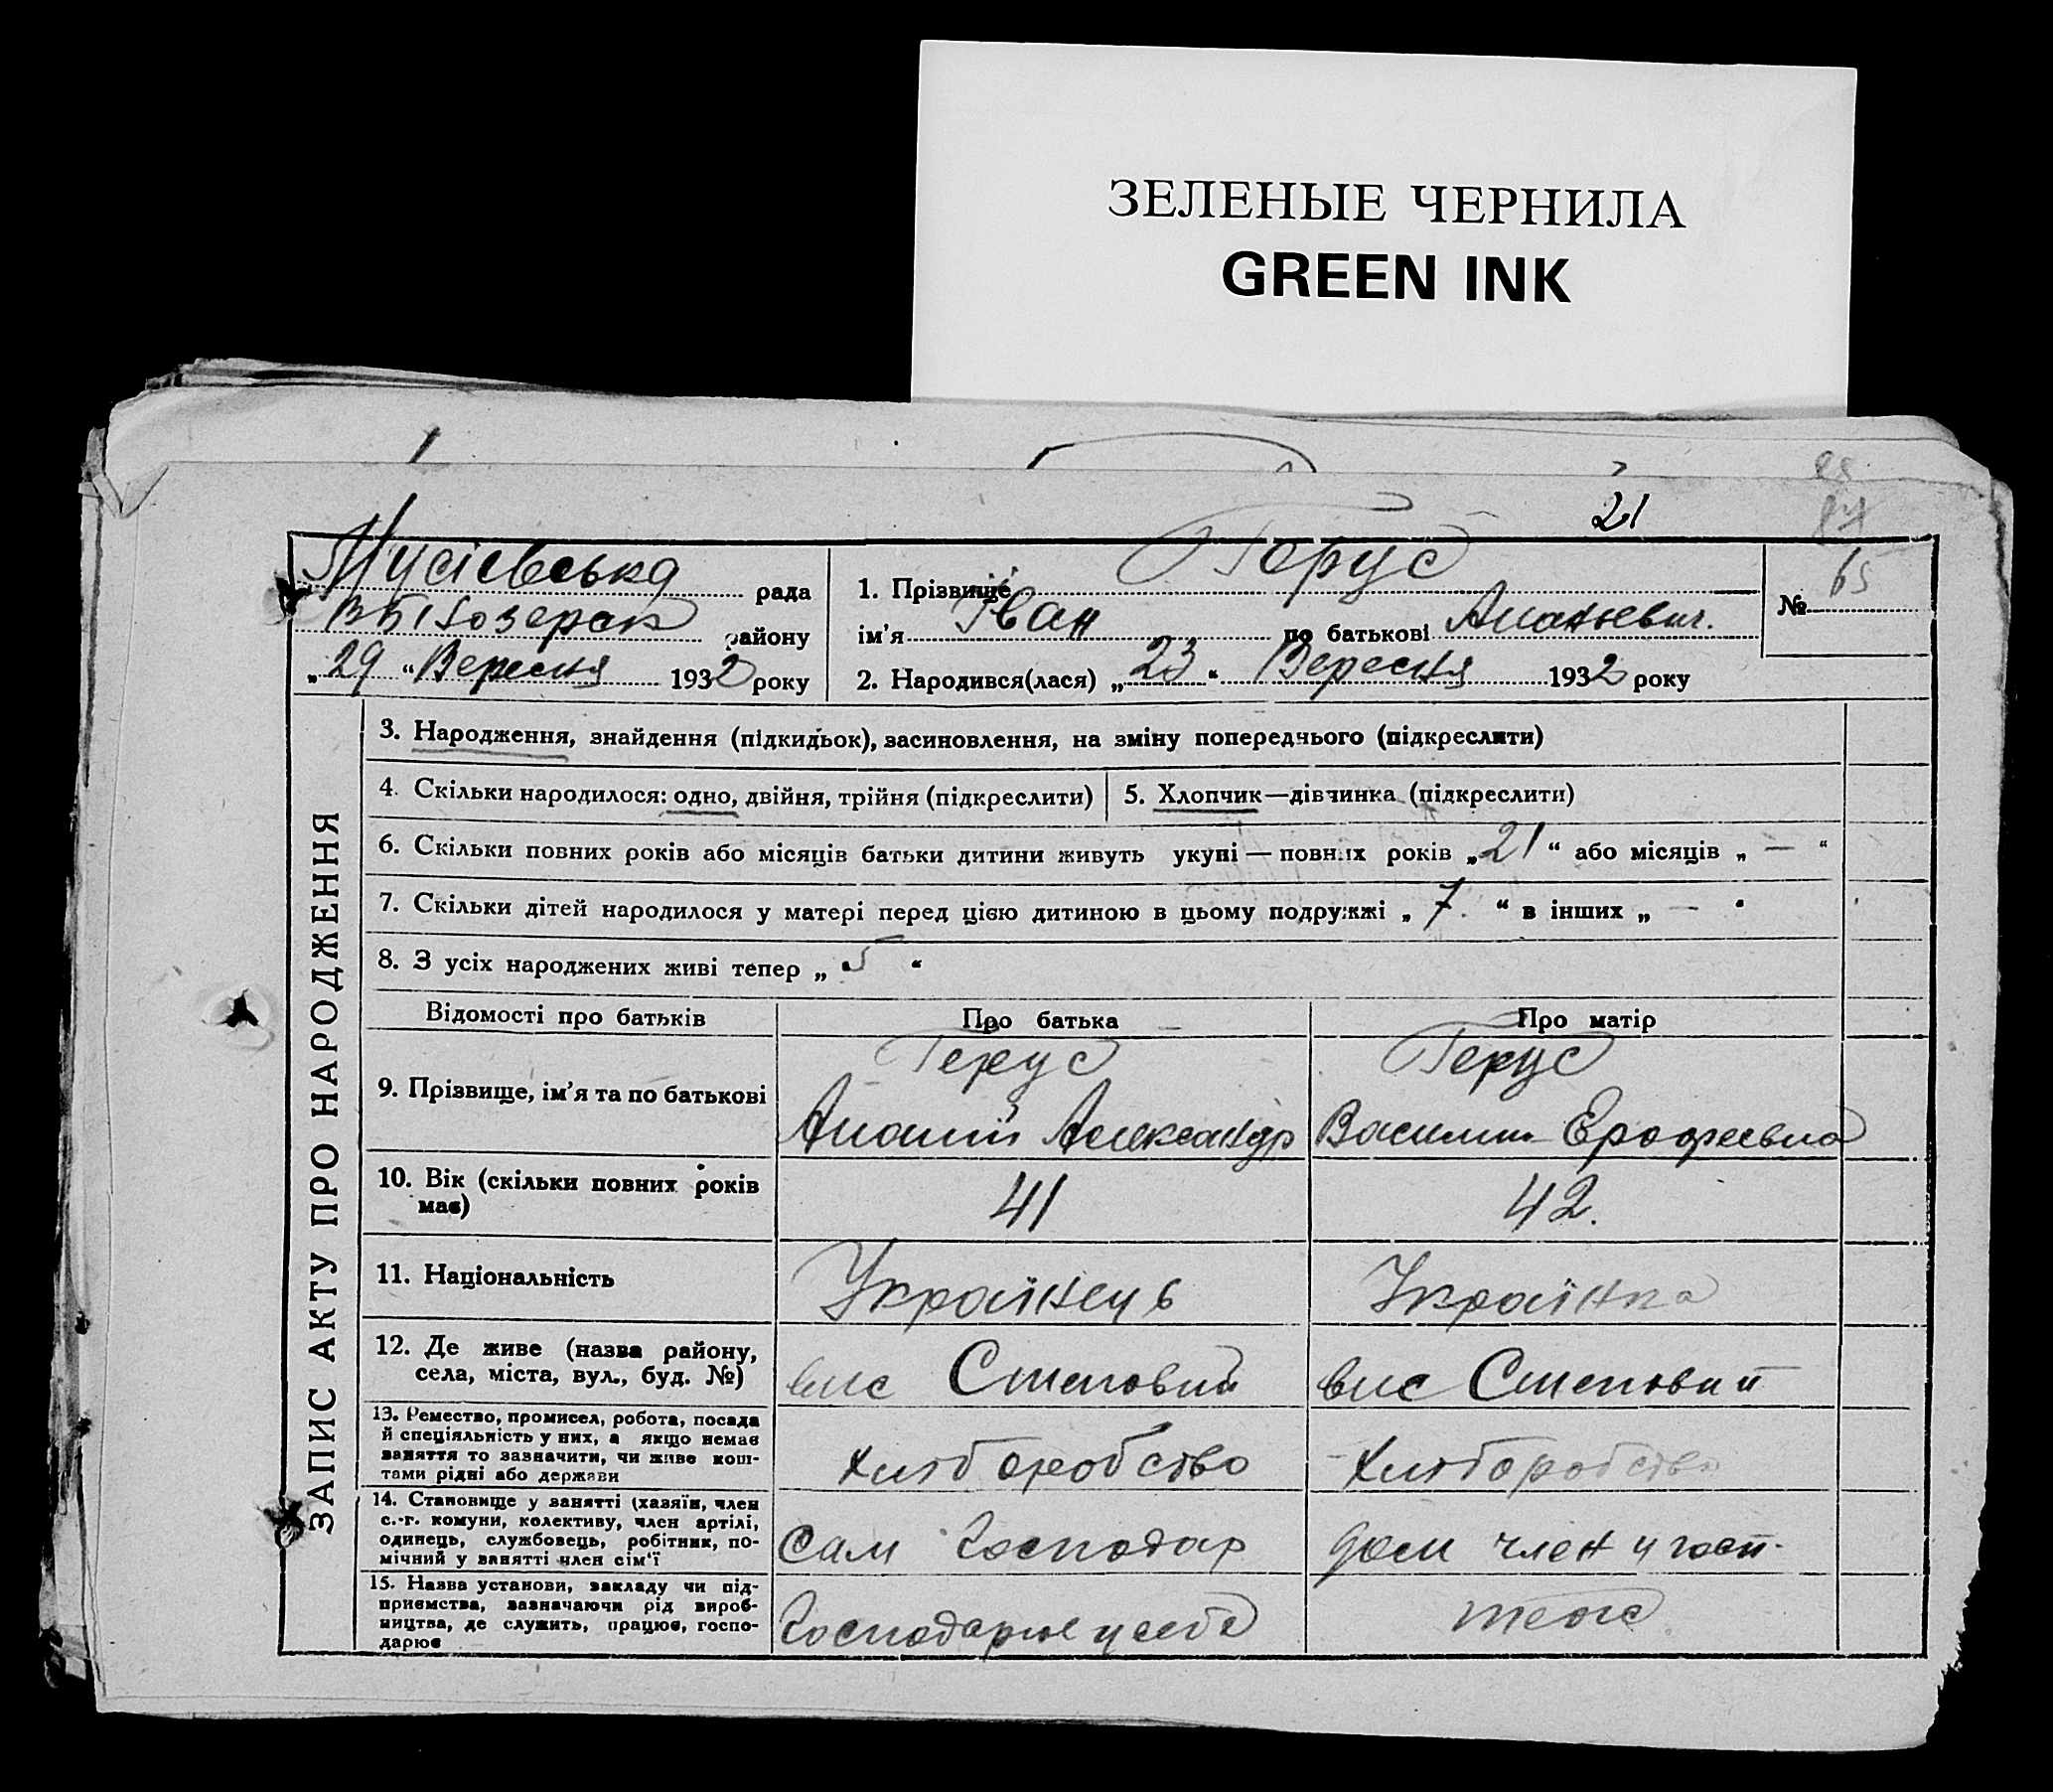 ЗЕЛЕНЫЕ ЧЕРНИЛА
GREEN INK
21
87
65
Мусієвська рада
району
„29“ Вересня 1932 року
1. Прізвище Герус
ім’я Іван по батькові Ананьевич.
№
2. Народився(лася) „23“ Вересня 1932 року
ЗАПИС АКТУ ПРО НАРОДЖЕННЯ
3. Народження, знайдення (підкидьок), засиновлення, на зміну попереднього (підкреслити)
4. Скільки народилося: одно, двійня, трійня (підкреслити)
5. Хлопчик—дівчинка (підкреслити)
6. Скільки повних років або місяців батьки дитини живуть укупі — повних років „21“ або місяців „ — “
7. Скільки дітей народилося у матері перед цією дитиною в цьому подружжі „ 7. “ в інших „ — “
8. З усіх народжених живі тепер „ 5 “
Відомості про батьків
Про батька
Про матір
9. Прізвище, ім’я та по батькові
Герус
Ананій Александр
Герус
Василин Ерофеевна
10. Вік (скільки повних років має)
41
42.
11. Національність
Українець
Українка
12. Де живе (назва району,
села, міста, вул., буд. №)
вис Степовий
вис Степовий
13. Ремество, промисел, робота, посада
й спеціяльність у них, а якщо немає
заняття то зазначити, чи живе кош-
тами рідні або держави
хлібаробство
хліборобство
14. Становище у занятті (хазяїн, член
с.-г. комуни, колективу, член артілі,
одинець, службовець, робітник, по-
мічний у занятті член сім’ї
Сам Господар
член у госп.
15. Назва установи, закладу чи під-
приємства, зазначаючи рід вироб-
ництва, де служить, працює, госпо-
дарює
Господарює у себе
тоже